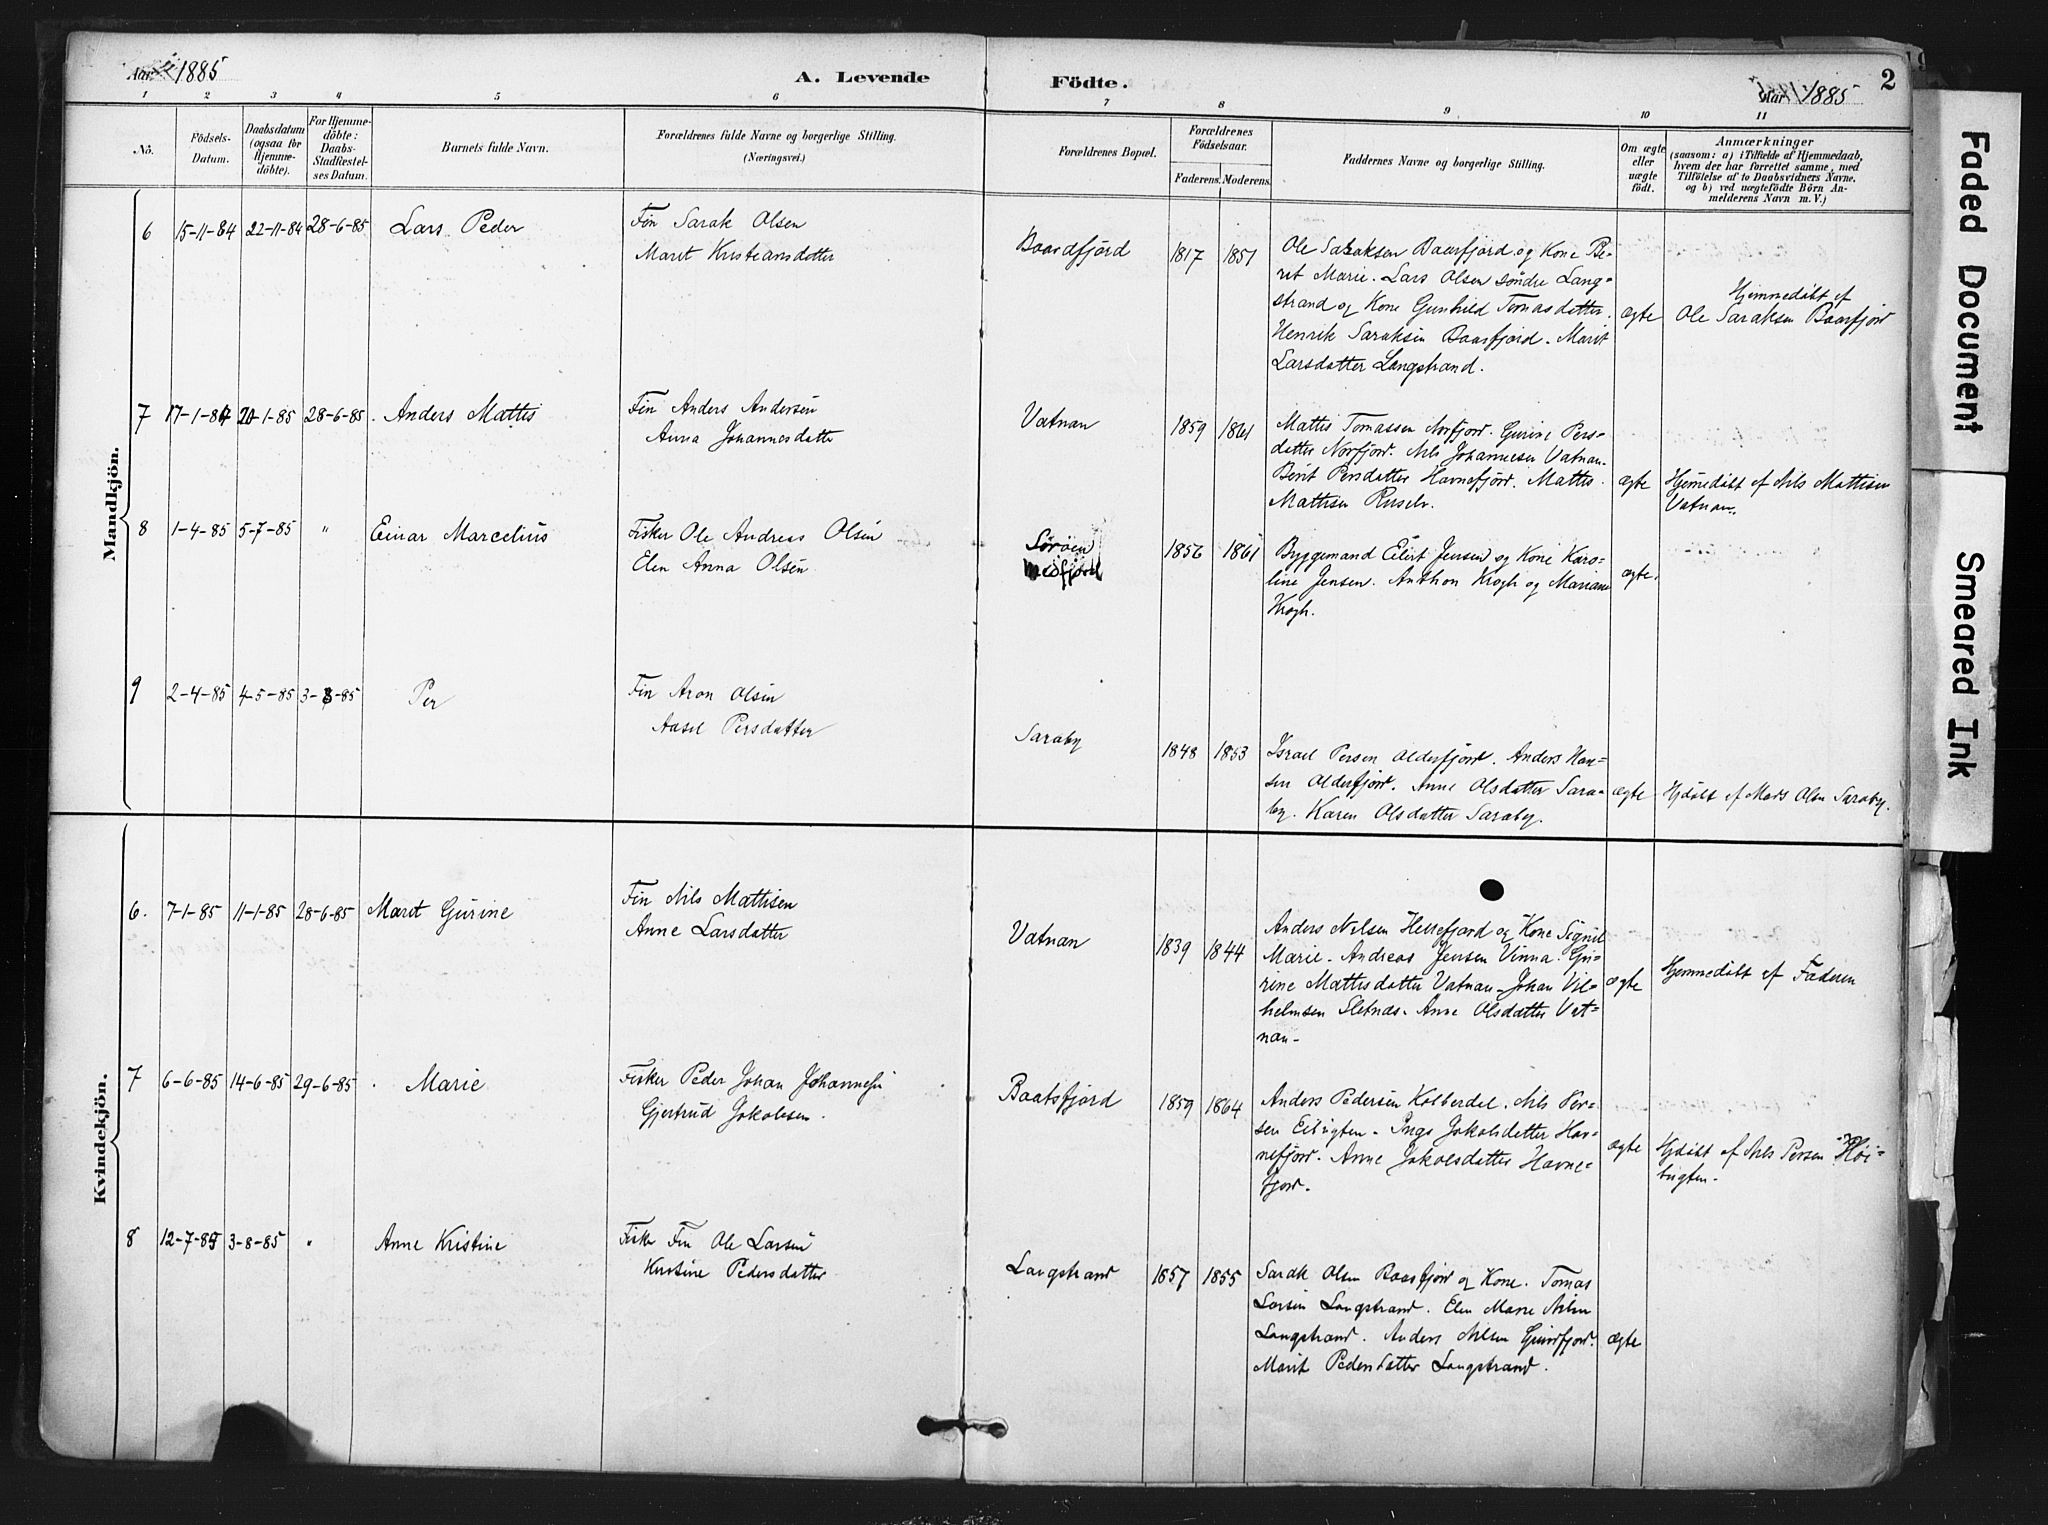 Aar 1885
A. Levende
Födte.
Aar 1885
2
1 2 3 4 5 6 7 8 9 10 11
No.
Födsels-
Datum.
Daabsdatum
(ogsaa for
Hjemme-
döbte).
For Hjemme-
döbte:
Daabs-
Stadfæstel-
ses Datum.
Barnets fulde Navn.
Forældrenes fulde Navne og borgerlige Stilling.
(Næringsvei.)
Forældrenes Bopæl.
Forældrenes
Födselsaar.
Faderens. Moderens.
Faddernes Navne og borgerlige Stilling.
Om ægte
eller
uægte
födt.
Anmærkninger
(saasom: a) i Tilfælde af Hjemmedaab,
hvem der har forrettet samme, med
Tilföielse af to Daabsvidners Navne.
og b) ved uægtefödte Börn An-
melderens Navn m. V.)
Mandkjön.
6 15-11-84 22-11-84 28-6-85 Lars Peder
Fin Sarak Olsen
Maret Kristiansdatter
Baarsfjord 1817 1851
Ole Saraksen Baarsfjord og Kone Be-
ret Marie. Lars Olsen söndre Lang-
strand og Kone Gunhild Tomasdatter.
Henrik Saraksen Baarsfjord. Marit
Larsdatter Langstrand.
ægte
Hjemmedöbt af
Ole Saraksen Baarsfjord
7 17-1-84 20-1-85 28-6-85 Anders Mattis
Fin Anders Andersen
Anna Johannesdatter
Vatnan 1859 1861
Mattis Tomassen Norfjord. Gurine Pers-
datter Norfjord. Nils Johannesen Vatnan.
Berit Persdatter Havnefjord. Mattis
Mattisen Russelv.
ægte
Hjemedöbt af Nils Mattisen
Vatnan.
8 1-4-85 5-7-85 " Einar Marcelius
Fisker Ole Andreas Olsen
Elen Anna Olsen
Söröen
Medfjord
1856 1861
Byggemand Eilert Jensen og Kone Karo-
line Jensen. Anthon Krogh og Mariane
Krogh.
ægte.
9 2-4-85 4-5-85 3-8-85 Per
Fin Aron Olsen
Aasel Persdatter
Saraby 1848 1853
Israel Persen Olderfjord. Anders Han-
sen Olderfjord. Anne Olsdatter Sara-
by. Karen Olsdatter Saraby.
ægte
Hjdöbt af Mads Olsen Saraby.
Kvindekjön.
6. 7-1-85 11-1-85 28-6-85 Maret Gurine
Fin Nils Mattisen
Anne Larsdatter
Vatnan 1839 1844
Anders Nilsen Hellefjord og Kone Signil
Marie. Andreas Jensen Vinna. Gu-
rine Mattisdatter Vatnan. Johan Vil-
helmsen Sletnæs. Anne Olsdatter Vat-
nan.
ægte
Hjemmedöbt af Faderen
7 6-6-85 14-6-85 29-6-85 Marie
Fisker Peder Johan Johannesen
Gjertrud Jakobsen.
Baatsfjord 1859 1864
Anders Pedersen Kolberdal. Nils Per-
sen Eibugten. Inga Jakobsdatter Hav-
nefjord. Anne Jakobsdatter Havne-
fjord.
ægte
Hjdöbt af Nils Persen Höi-
bugten.
8 12-7-85 3-8-85 " Anne Kristine
Fisker Fin Ole Larsen
Kristine Pedersdatter
Langstrand 1857 1855
Sarak Olsen Baarsfjord og Kone. Tomas
Larsen Langstrand. Elen Marie Nilsen
Langstrand. Anders Nilsen
Marit Pedersdatter Langstrand.
ægte
Faded Document
Smeared Ink